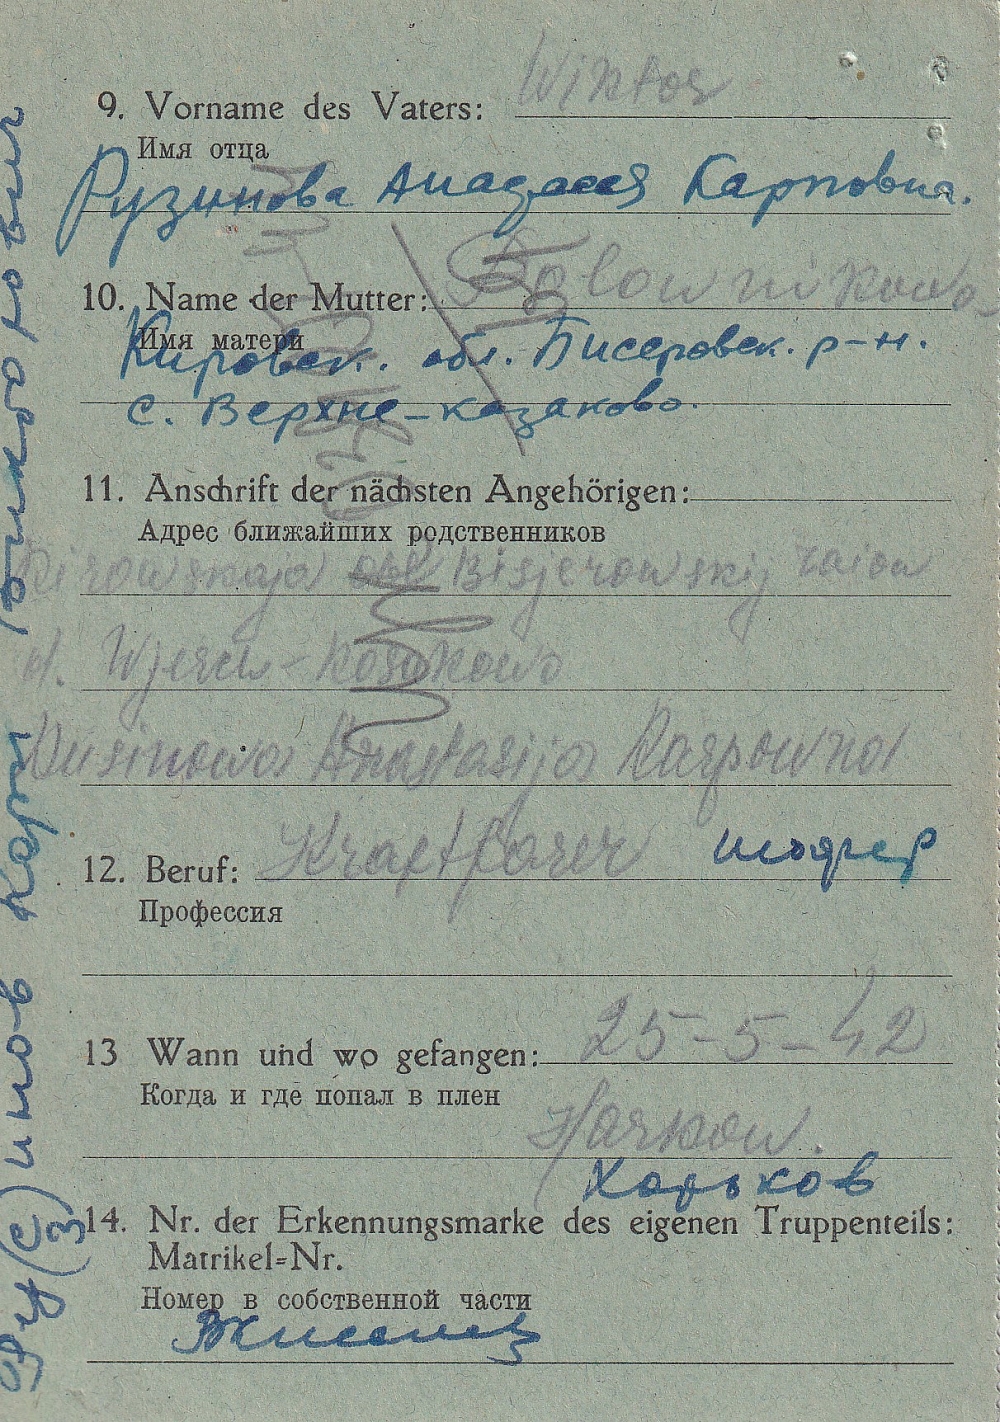 9. Vorname des Vaters: Wiktor
Имя отца
Рузинова Анадасея Карповна.
10. Name der Mutter: Bolownikowa
Имя матери
Кировск. обл. Бисеровск. р-н.
с. Верхне-казаково.
11. Anschrift der nächsten Angehörigen:
Адрес ближайших родственников
Kirowskaja obl Bisjerowskij raion
d. Wjerch-Kosakowo
Rusinowa Anastasija Karpowna
12. Beruf: Kraftfarer шофер
Профессия
13 Wann und wo gefangen: 25-5-42
Когда и где попал в плен
Harkow.
Харьков
14. Nr. der Erkennungsmarke des eigenen Truppenteils:
Matrikel=Nr.
Номер в собственной части